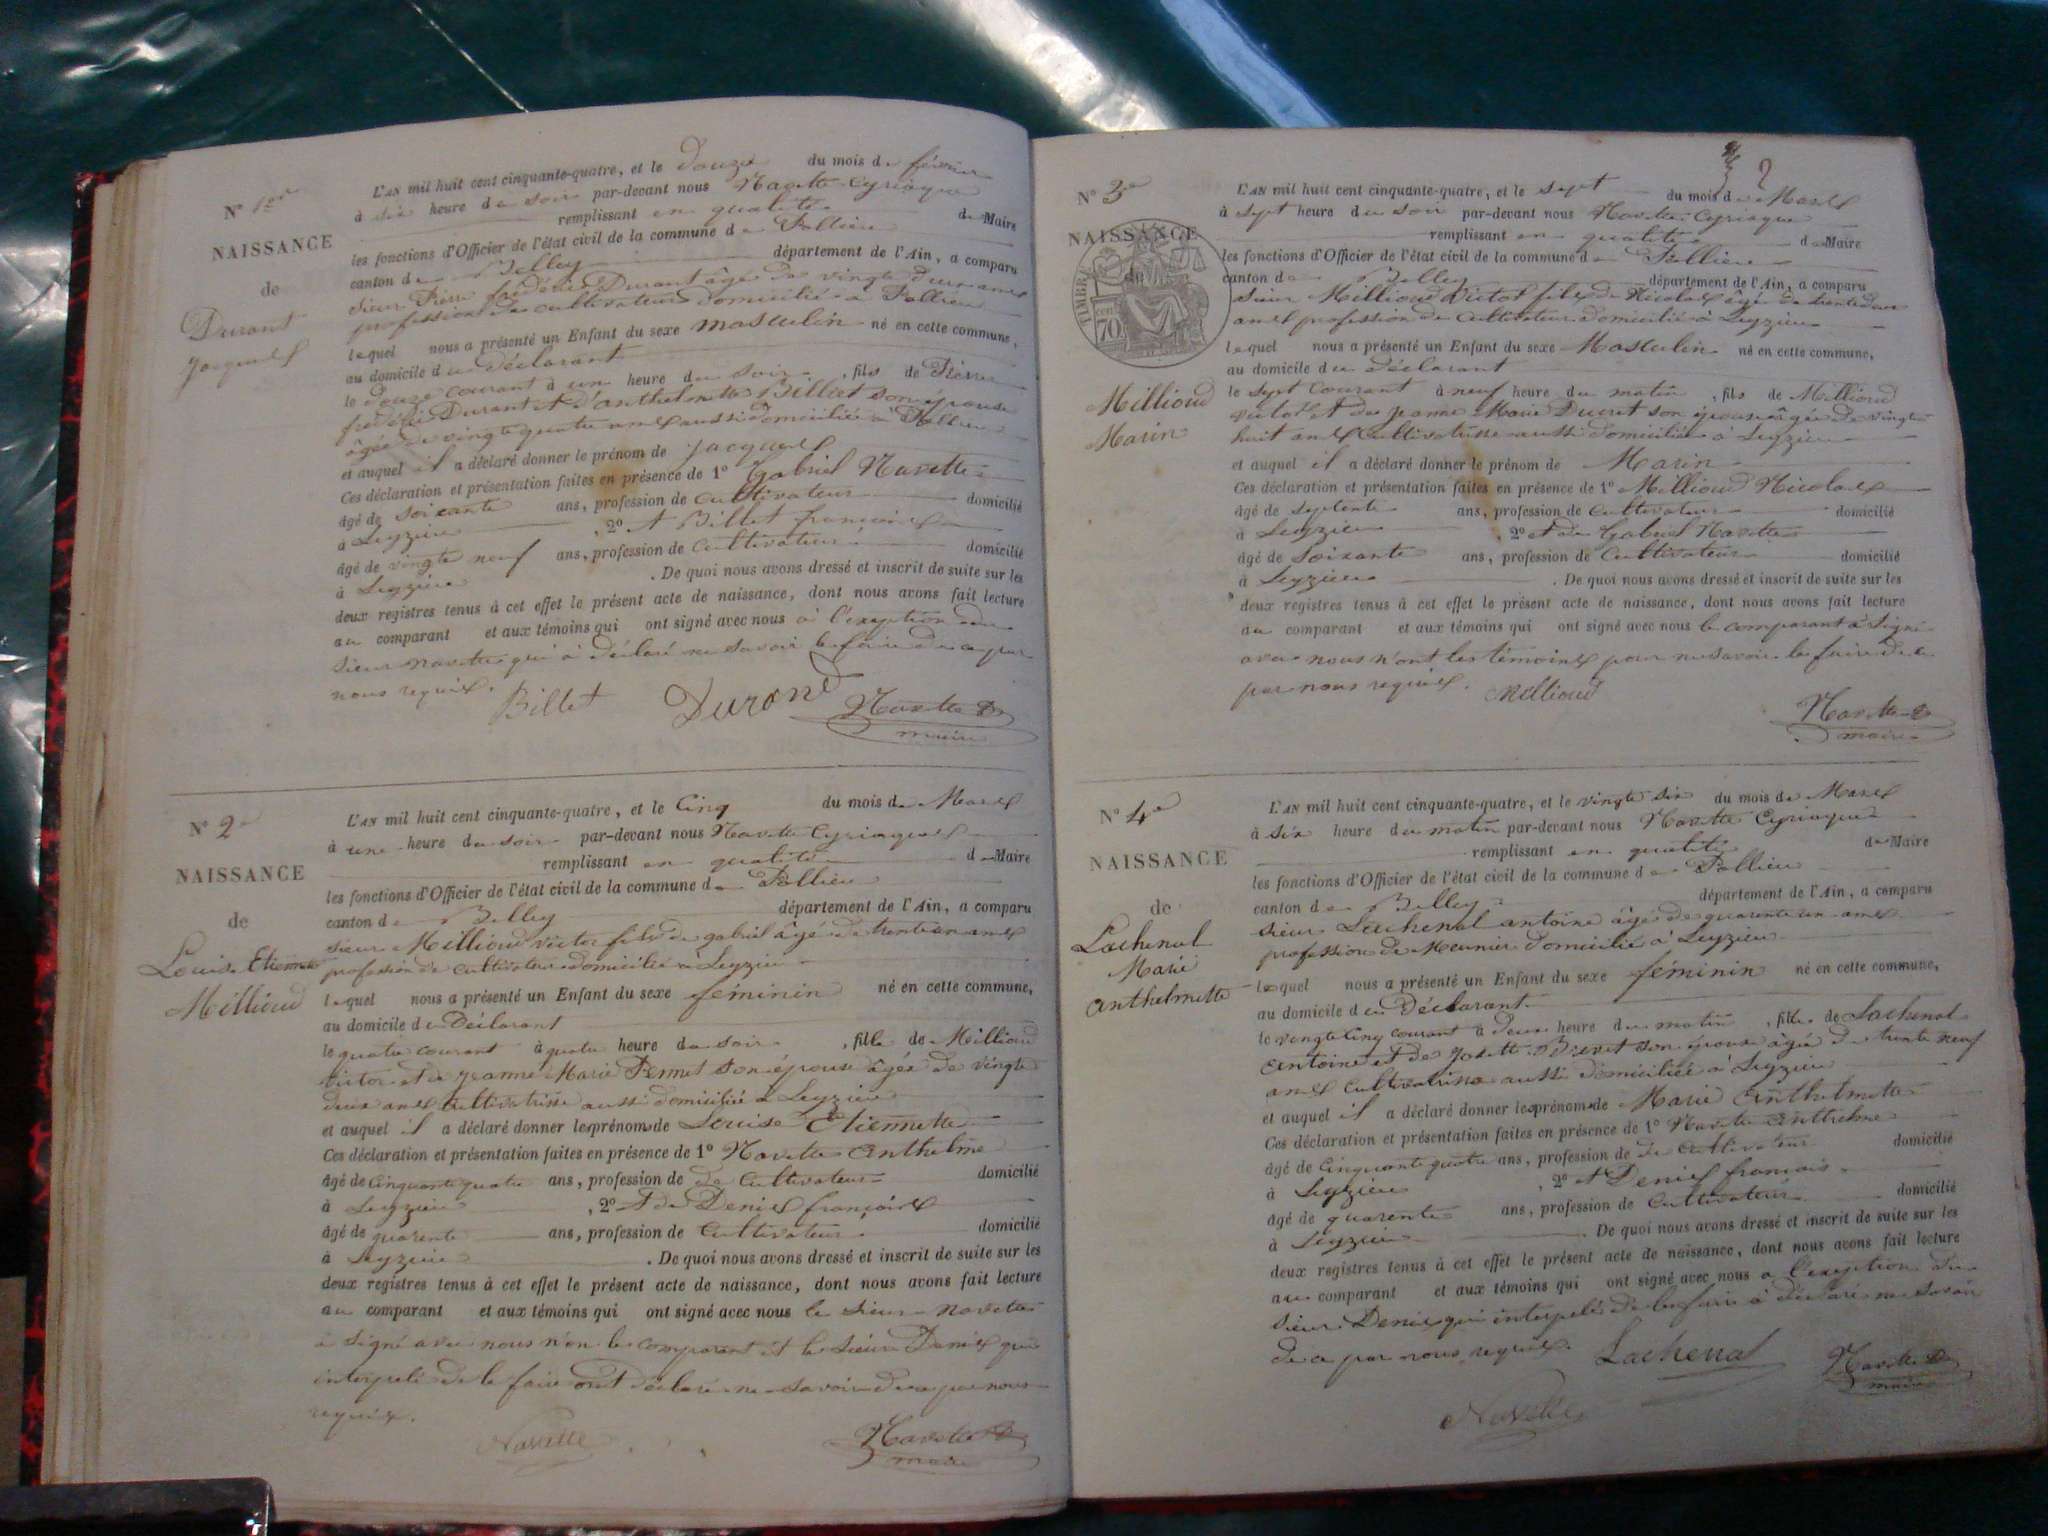 N° 1er
NAISSANCE
de
Durant
Jacques
L'AN mil huit cent cinquante-quatre, et le douze du mois de février
à six heure du soir par-devant nous Navette Cyriaque
remplissant en qualité de Maire
les fonctions d'Officier de l'état civil de la commune de Pollieu
canton de Belley département de l'Ain, a comparu
sieur Pierre frédéric Durant âgé de vingt deux ans
profession de cultivateur domicilié à Pollieu
lequel nous a présenté un Enfant du sexe masculin né en cette commune,
au domicile du déclarant
le douze courant à une heure du soir, fils de Pierre
frédéric Durant et d'anthelmette Billet son épouse
âgée de vingt quatre ans aussi domiciliée à Pollieu
et auquel il a déclaré donner le prénom de Jacques
Ces déclaration et présentation faites en présence de 1° Gabriel Navette
âgé de soixante ans, profession de cultivateur domicilié
à Leyzieu, 2° et Billet françois
âgé de vingt neuf ans, profession de cultivateur domicilié
à Leyzieu. De quoi nous avons dressé et inscrit de suite sur les
deux registres tenus à cet effet le présent acte de naissance, dont nous avons fait lecture
au comparant et aux témoins qui ont signé avec nous à l'exeption du
sieur navette qui à déclaré ne savoir le faire de ce par
nous requis.
Billet Durand Navette
maire
N° 2
NAISSANCE
de
Louise Etiennette
Millioud
L'AN mil huit cent cinquante-quatre, et le Cinq du mois de Mars
à une heure du soir par-devant nous Navette Cyriaque
remplissant en qualité de Maire
les fonctions d'Officier de l'état civil de la commune de Pollieu
canton de Belley département de l'Ain, a comparu
sieur Millioud victor fils de gabriel âgé de trente un ans
profession de cultivateur domicilié à Leyzieu
lequel nous a présenté un Enfant du sexe féminin né en cette commune,
au domicile du Déclarant
le quatre courant à quatre heure du soir, fille de Millioud
victor et de Jeanne Marie son épouse âgée de vingt
deux ans Cultivatrisse aussi domiciliée à Leyzieu
et auquel il a déclaré donner les prénoms de Louise Etiennette
Ces déclaration et présentation faites en présence de 1° Navette Anthelme
âgé de cinquante quatre ans, profession de de Cultivateur domicilié
à Leyzieu, 2° et de Denis françois
âgé de quarente ans, profession de Cultivateur domicilié
à Leyzieu. De quoi nous avons dressé et inscrit de suite sur les
deux registres tenus à cet effet le présent acte de naissance, dont nous avons fait lecture
au comparant et aux témoins qui ont signé avec nous le sieur navette
à signé avec nous n'on le comparant et le sieur Denis qui
interpelé de le faire ont déclaré ne savoir de ce par nous
requis.
Navette Navette
maire
N° 3
NAISSANCE
de
TIMBRE
70
Millioud
Marin
L'AN mil huit cent cinquante-quatre, et le sept du mois de Mars
à sept heure du soir par-devant nous Navette Cyriaque
remplissant en qualité de Maire
les fonctions d'Officier de l'état civil de la commune de Pollieu
canton de Belley département de l'Ain, a comparu
sieur Millioud Victor fils de Nicolas âgé de trente deux
ans profession de cultivateur domicilié à Leyzieu
lequel nous a présenté un Enfant du sexe Masculin né en cette commune,
au domicile du déclarant
le sept courant à neuf heure du matin, fils de Millioud
victor et de Jeanne Marie Ducret son épouse âgée de vingt
huit ans Cultivatrisse aussi domiciliée à Leyzieu
et auquel il a déclaré donner le prénom de Marin
Ces déclaration et présentation faites en présence de 1° Millioud Nicolas
âgé de septente ans, profession de cultivateur domicilié
à Leyzieu, 2° et de Gabriel Navette
âgé de Soixante ans, profession de Cultivateur domicilié
à Leyzieu. De quoi nous avons dressé et inscrit de suite sur les
deux registres tenus à cet effet le présent acte de naissance, dont nous avons fait lecture
au comparant et aux témoins qui ont signé avec nous le comparant à signé
avec nous n'ont les témoins pour ne savoir le faire de ce
par nous requis. Millioud
Navette
maire
N° 4
NAISSANCE
de
Lachenal
Marie
anthelmette
L'AN mil huit cent cinquante-quatre, et le vingt six du mois de Mars
à six heure du matin par-devant nous Navette Cyriaque
remplissant en qualité de Maire
les fonctions d'Officier de l'état civil de la commune de Pollieu
canton de Belley département de l'Ain, a comparu
sieur Lachenal antoine âgé de quarente un ans
profession de Meunier domicilié à Leyzieu
lequel nous a présenté un Enfant du sexe féminin né en cette commune,
au domicile du Déclarant
le vingt cinq courant à deux heure du matin, fille de Lachenal
antoine et de Josette son épouse âgée de trente neuf
ans cultivatrisse aussi domiciliée à Leyzieu
et auquel il a déclaré donner les prénoms de Marie Anthelmette
Ces déclaration et présentation faites en présence de 1° Navette Anthelme
âgé de Cinquante quatre ans, profession de de Cultivateur domicilié
à Leyzieu, 2° et Denis francois
âgé de quarente ans, profession de Cultivateur domicilié
à Leyzieu. De quoi nous avons dressé et inscrit de suite sur les
deux registres tenus à cet effet le présent acte de naissance, dont nous avons fait lecture
au comparant et aux témoins qui ont signé avec nous a l'exeption du
sieur Denis qui interpelé de le faire à déclaré ne savoir
de ce par nous requis. Lachenal Navette
maire
Navette